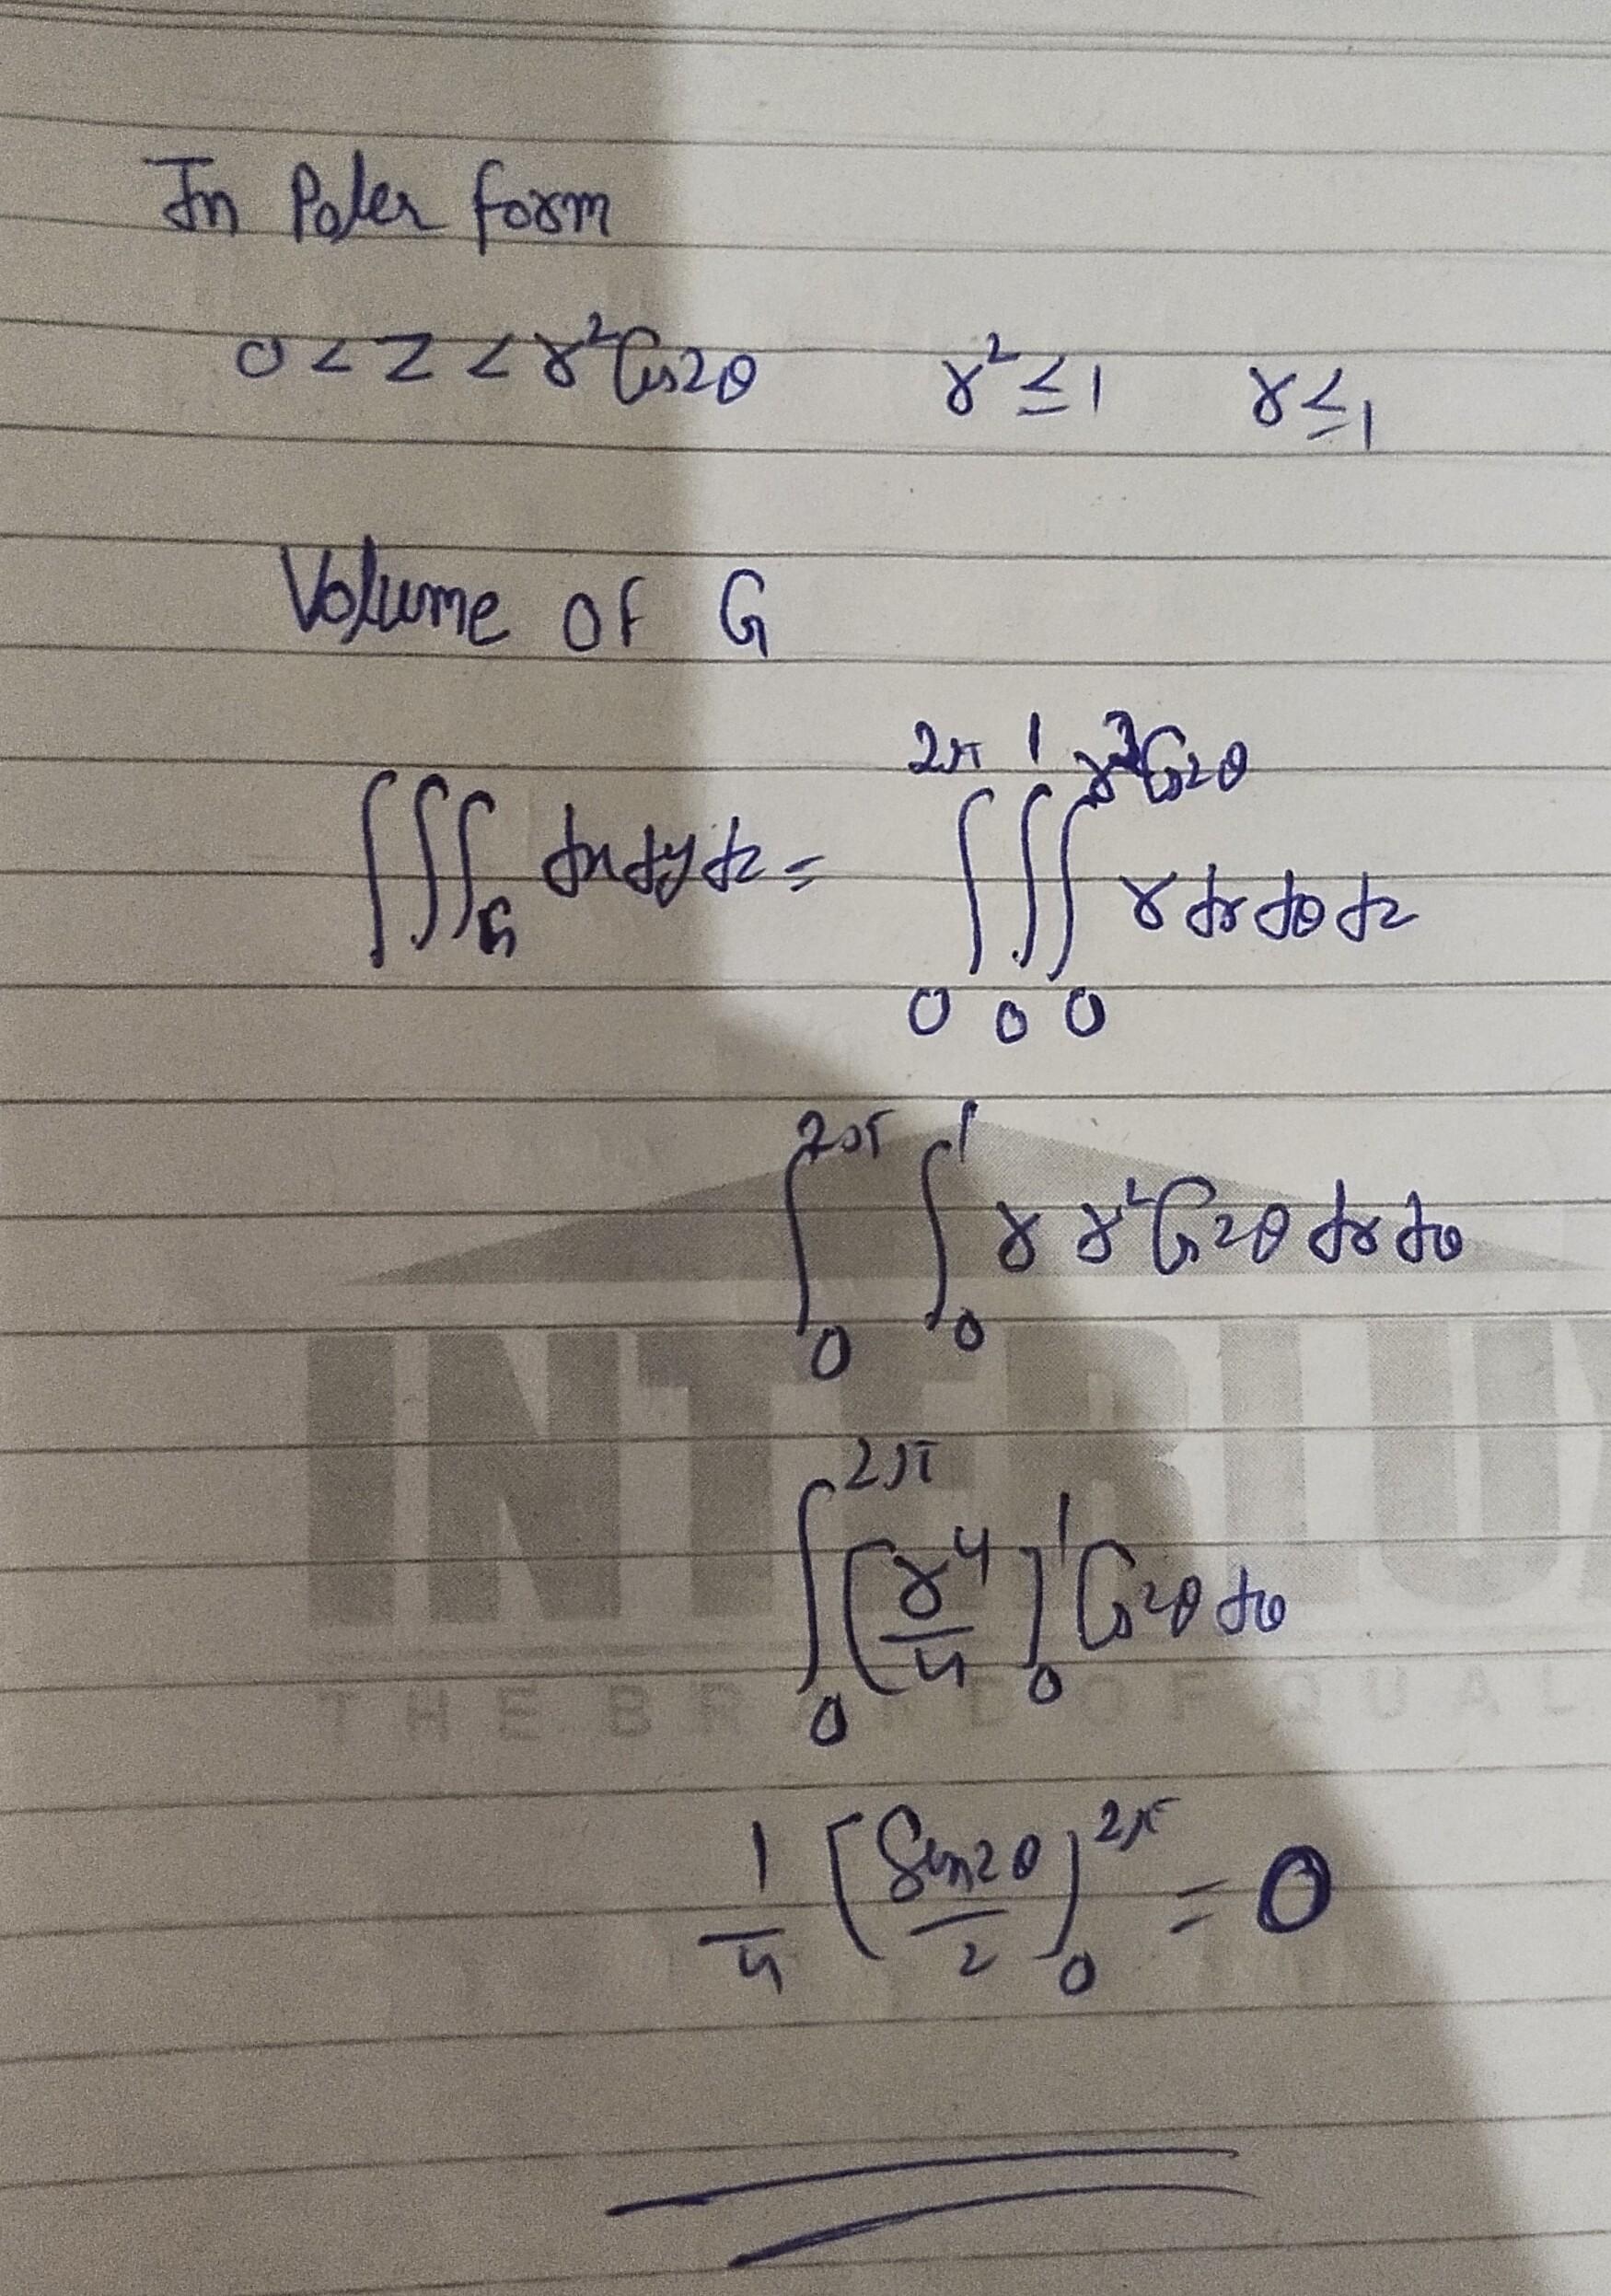 In Poler form
0 < z < r² Cos2θ r² ≤ 1 r ≤ 1
Volume OF G
∭_G dxdydz = ∫₀^2π ∫₀^1 ∫₀^r²Cos2θ r dr dθ dz
∫₀^2π ∫₀^1 r r² Cos2θ dr dθ
∫₀^2π [r⁴/4]₀^1 Cos2θ dθ
1/4 [Sin2θ/2]₀^2π = 0
INTERLUX
THE BRAND OF QUAL